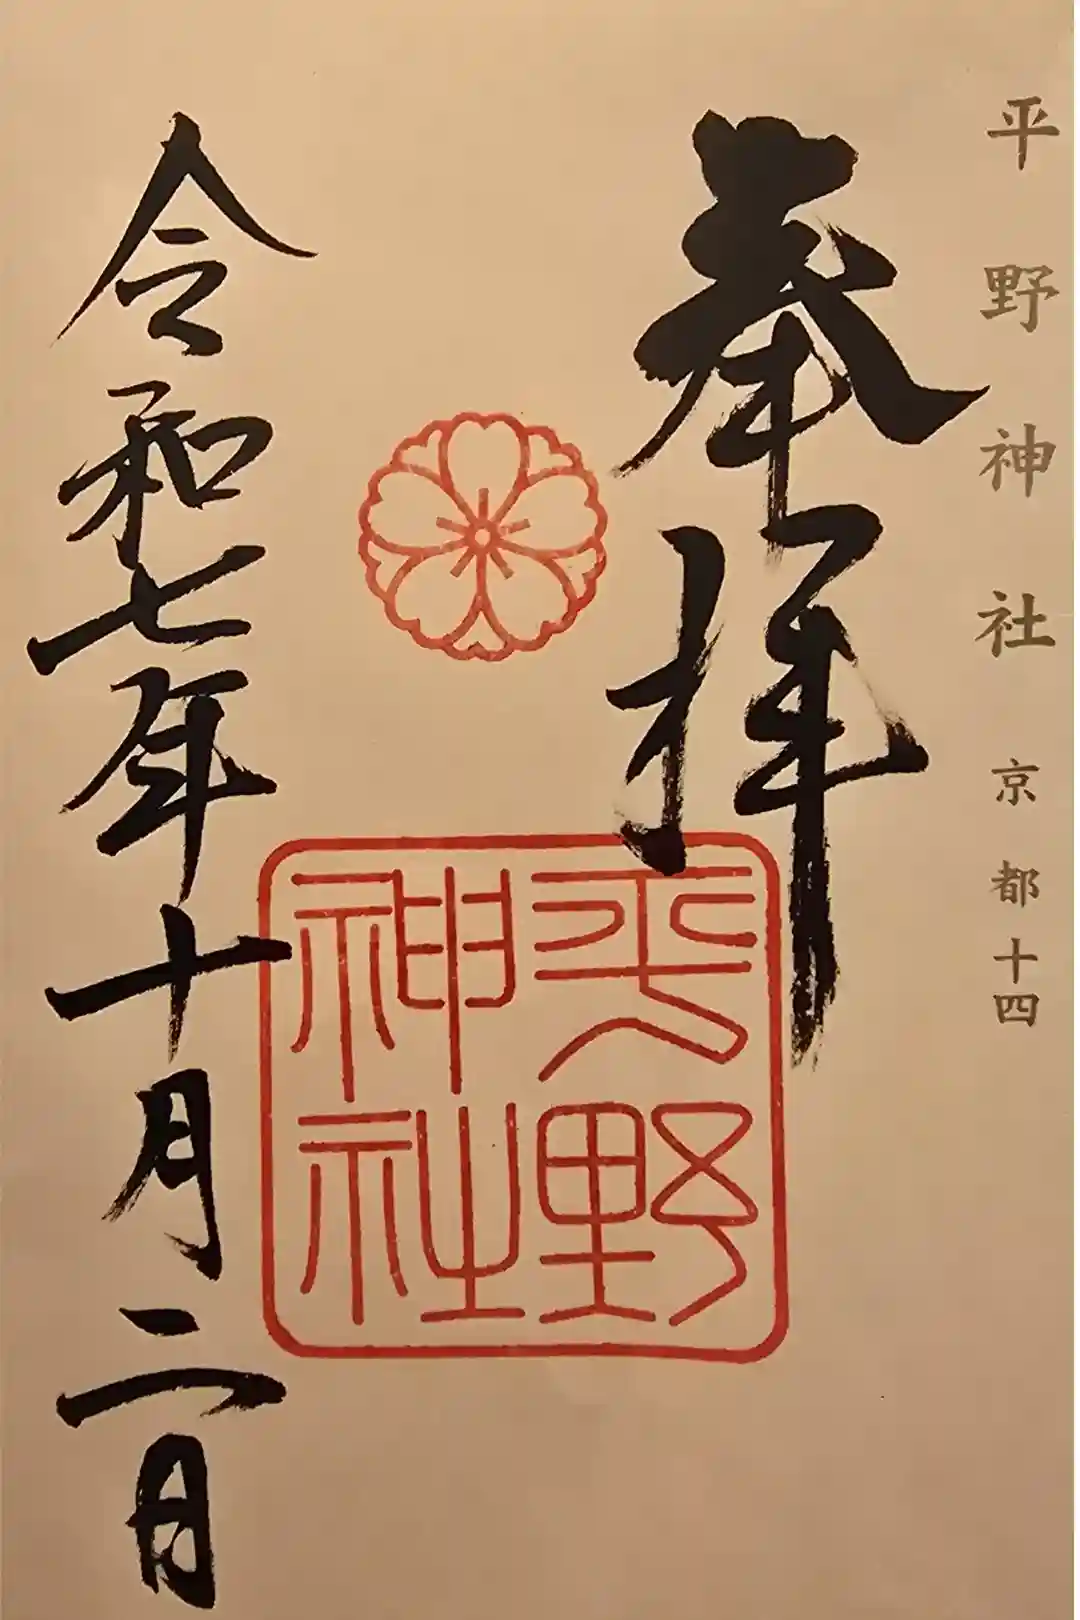 平野神社 京都十四
奉拝
平野
神社
令和七年十月二日